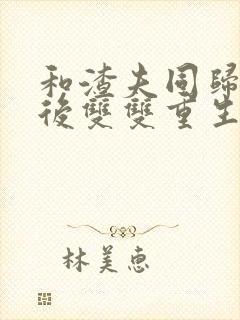 和渣夫同歸
後雙雙重生
林美惠